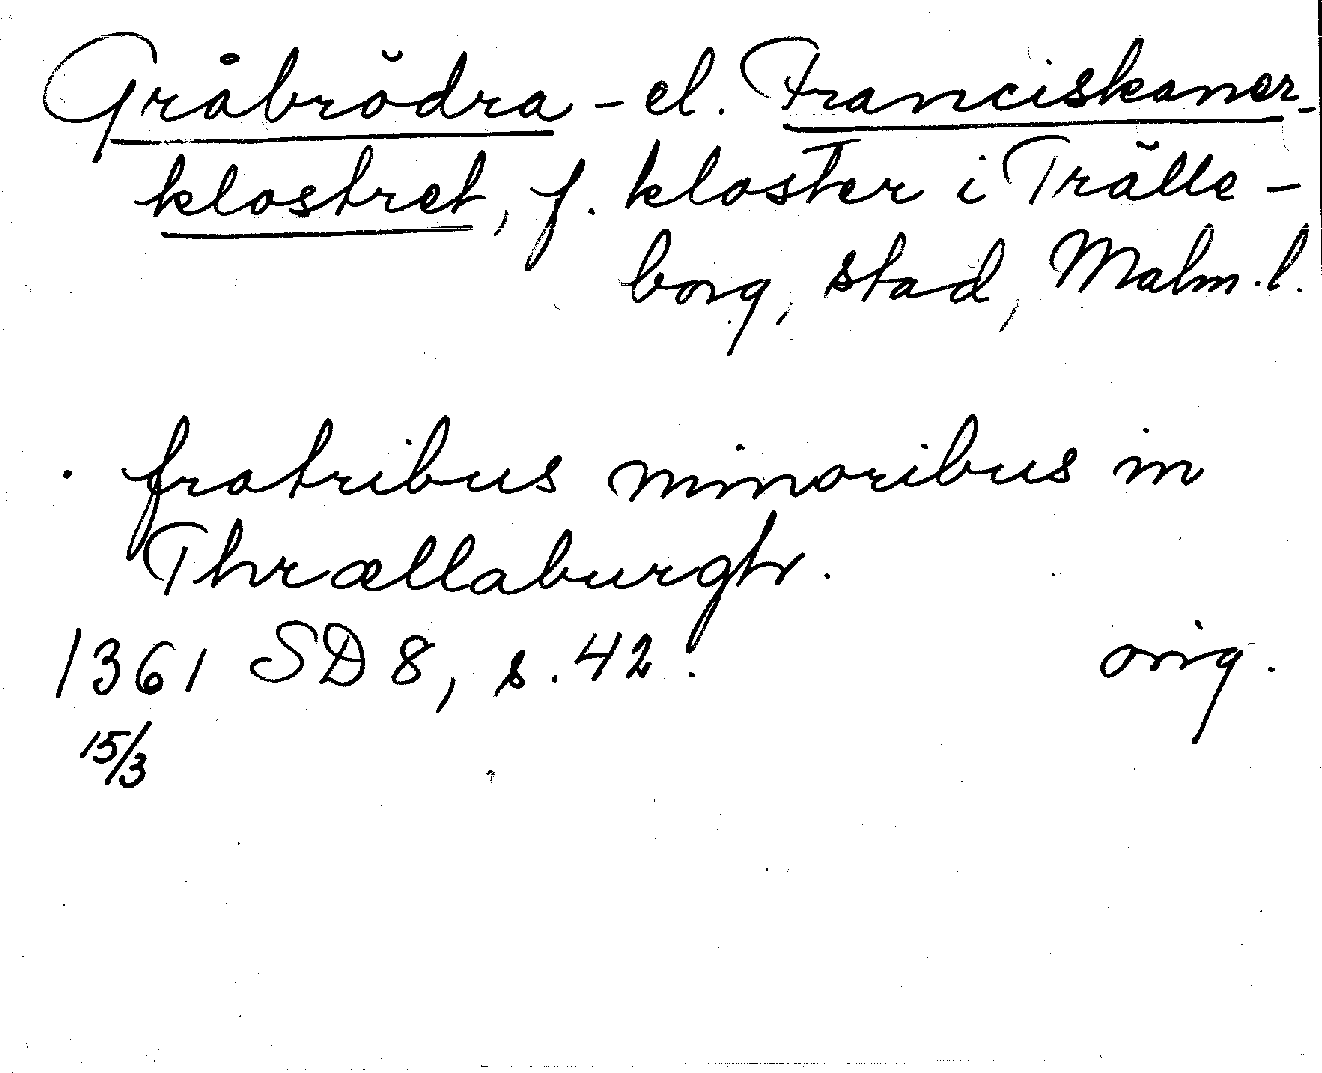 Gråbrödra - el. Franciskaner-
klostret, f. kloster i Trälle-
borg, stad, Malm. l.
fratribus minoribus in
Thrællaburgh.
1361 SD 8, s. 42. orig.
15/3